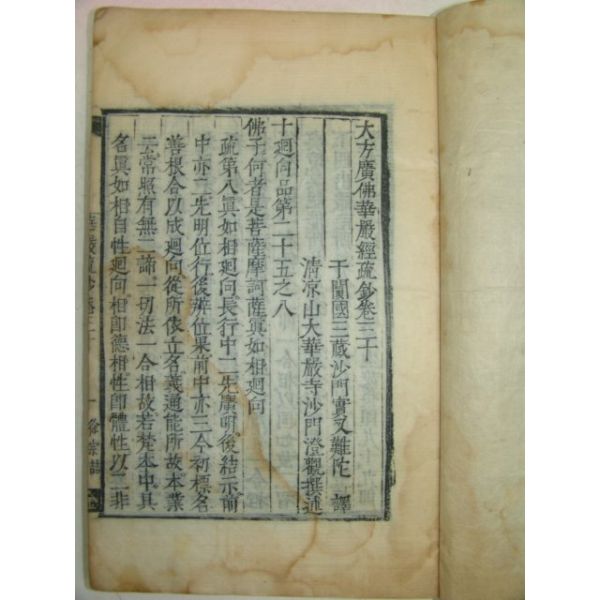 大方廣佛華嚴經疏鈔卷三十
于闐國三藏沙門實叉難陀 譯
清凉山大華嚴寺沙門澄觀撰述
十廻向品第二十五之八
佛子何者是菩薩摩訶薩眞如相廻向
疏第八眞如相廻向長行中二先廣明後結示前
中亦二先明位行後辨位果前中亦三今初標名
善根合以成廻向從所依立名義通能所故本業
云常照有無二諦一切法一合相故若梵本中具
名眞如相自性廻向相卽德相性卽體性以二非
華嚴疏鈔卷三十 一